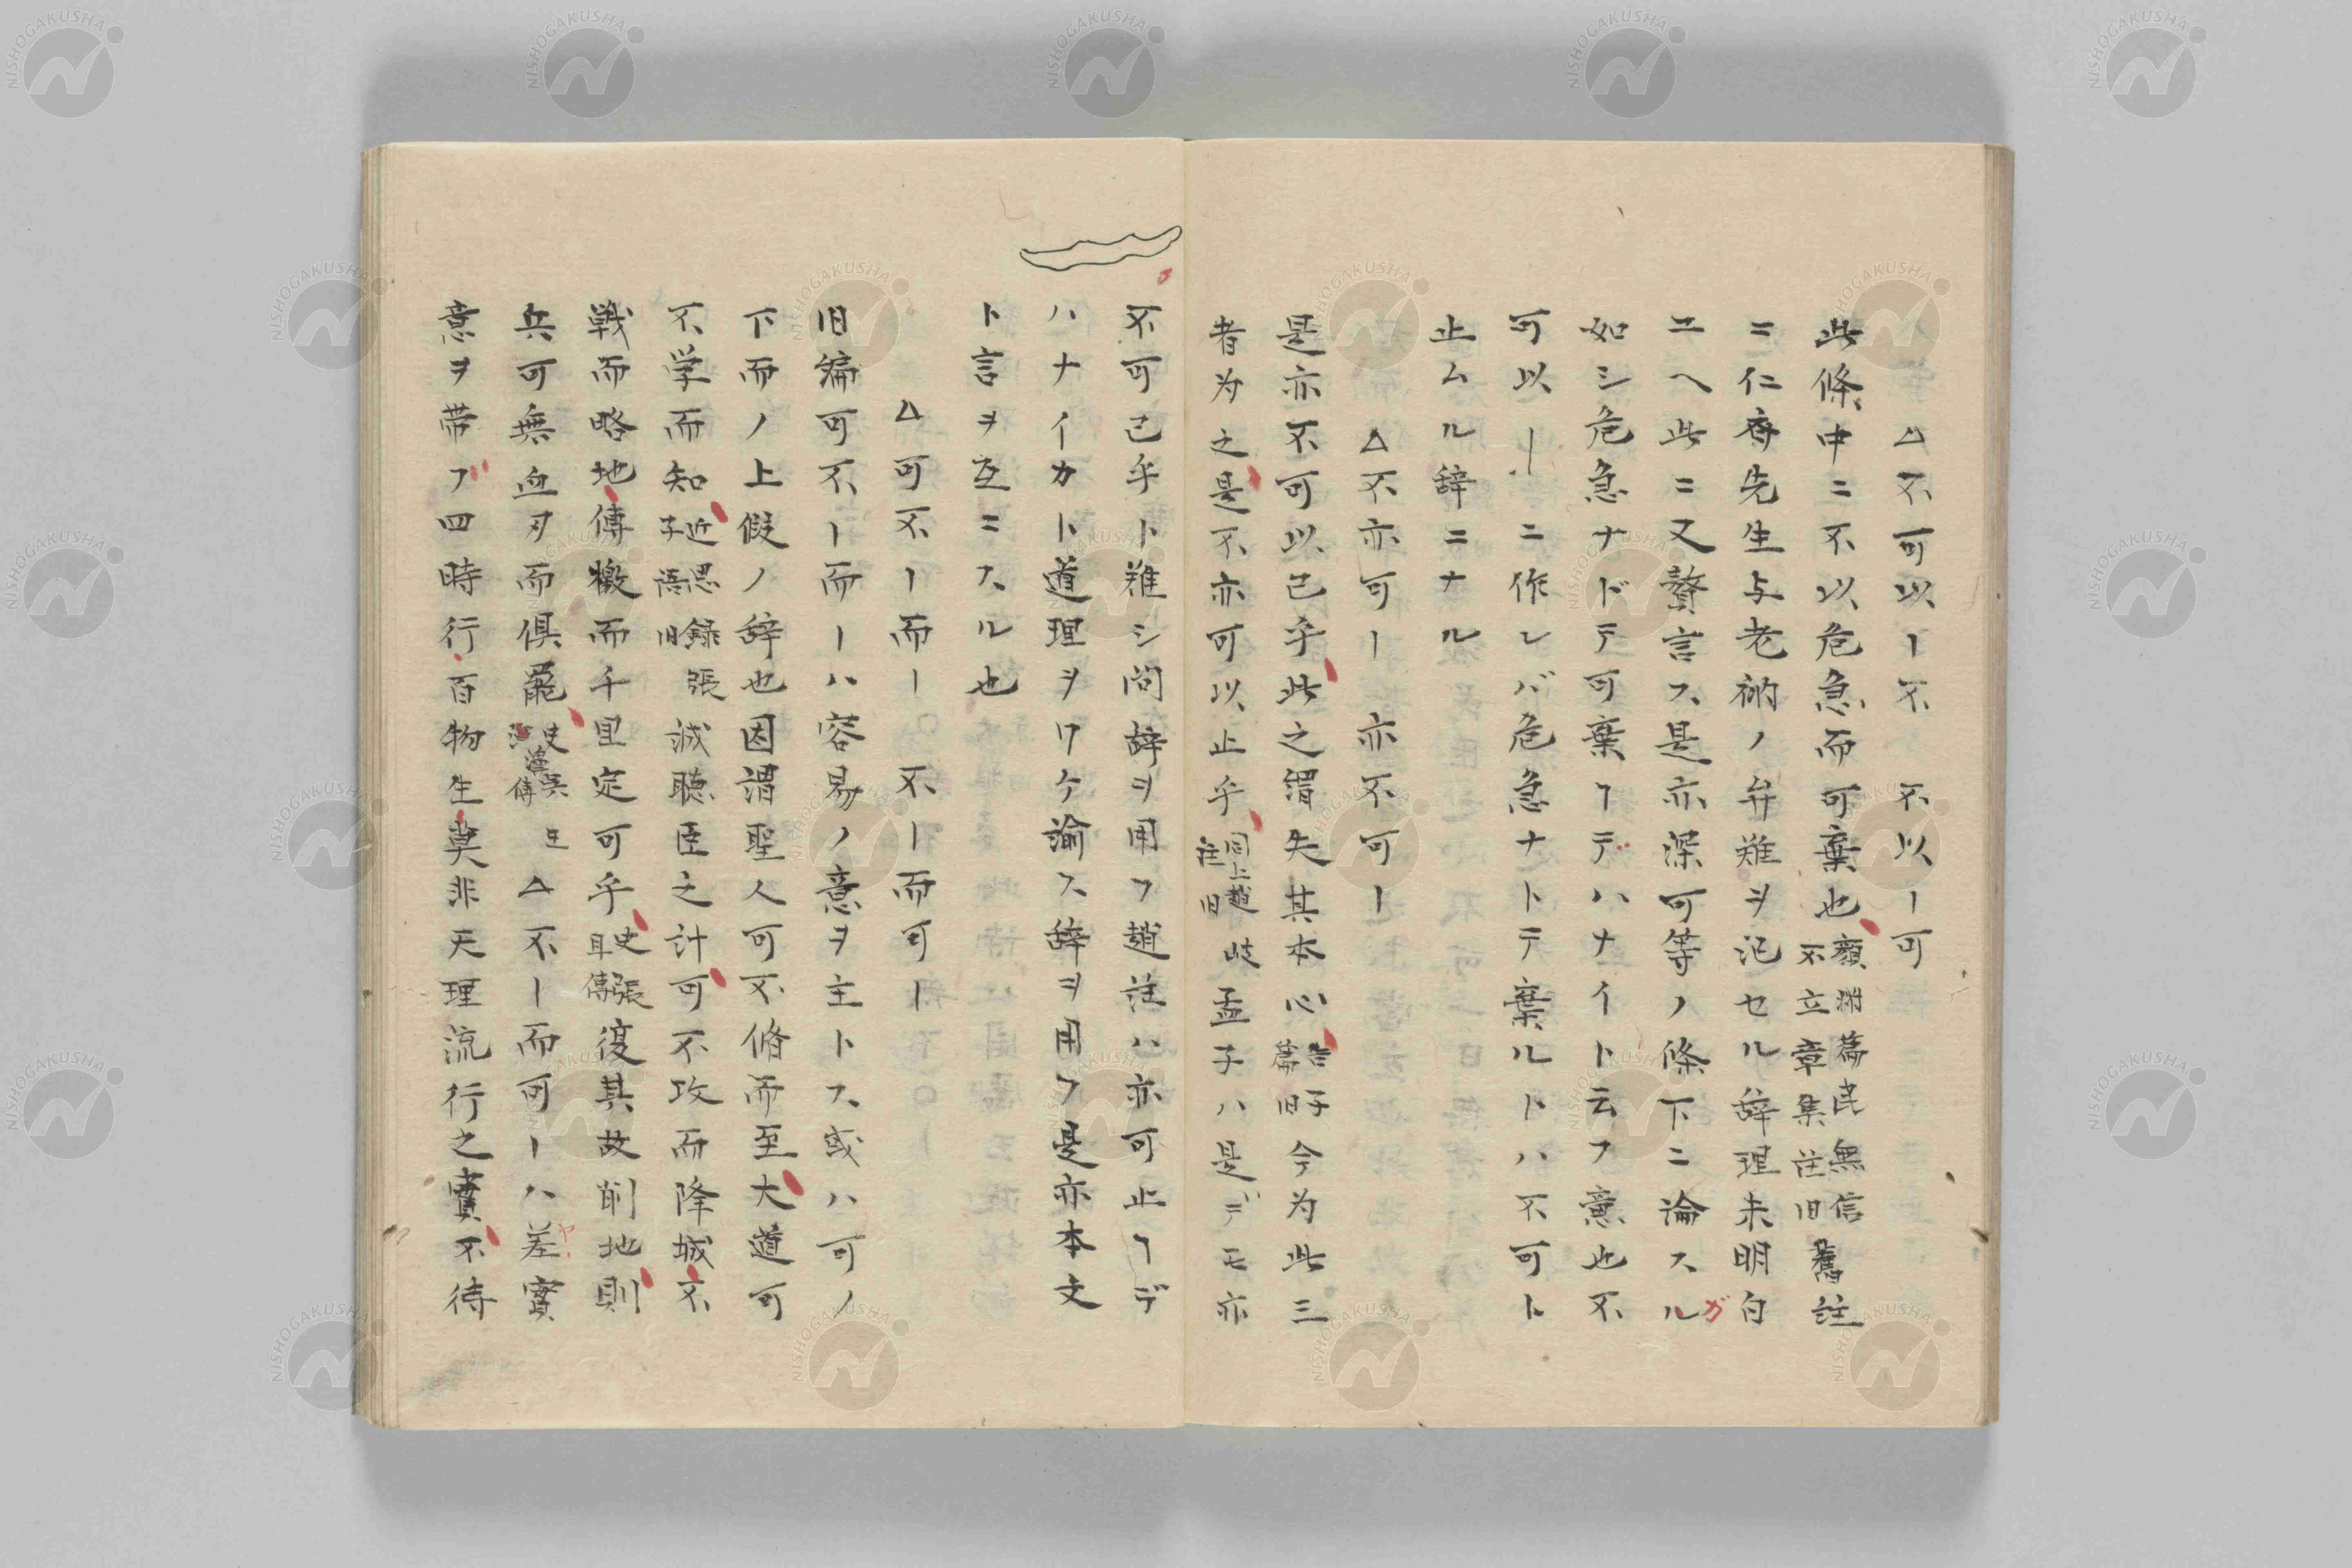 △不可以ー不　不以ー可
此條中ニ不以危急而可棄也顔淵篇民無信不立章集註旧舊註
ニ仁斎先生与老衲ノ弁難ヲ記セル辞理未明白
ユヘ此ニ又贅言ス是亦深可等ノ條下ニ論スルガ
如シ危急ナドテ可棄ヿデハナイト云フ意也不
可以ーニ作レバ危急ナトテ棄ルトハ不可ト
止ムル辞ニナル
△不亦可ー　亦不可ー
是亦不可以已乎此之謂失其本心告子篇旧今为此三
者为之是不亦可以止乎同上趙註旧岐孟子ハ是デモ亦
不可已乎ト難シ問辞ヲ用フ趙註ハ亦可止ヿデ
ハナイカト道理ヲワケ諭ス辞ヲ用フ是亦本文
ト言ヲ互ニスル也
△可不ー而ー　不ー而可ー
旧編可不ー而ーハ容易ノ意ヲ主トス或ハ可ノ
下而ノ上假ノ辞也因謂聖人可不脩而至大道可
不学而知近思録子語旧張誠聴臣之計可不攻而降城不
戦而略地傳檄而千里定可乎史張耳傳復其故削地則
兵可無血刃而俱罷史漢吳傳旦△不ー而可ーハ差實
意ヲ帯ブ四時行百物生莫非天理流行之實不待
NISHOGAKUSHA